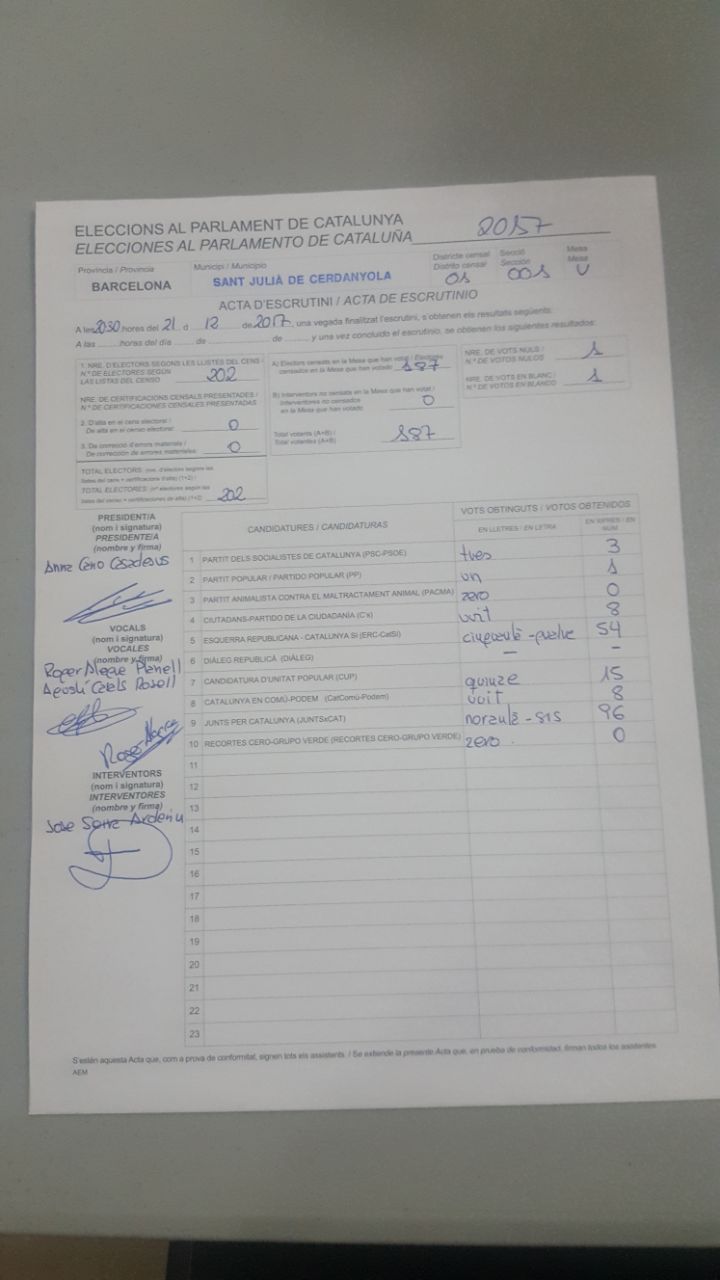 ELECCIONS AL PARLAMENT DE CATALUNYA
ELECCIONES AL PARLAMENTO DE CATALUÑA 2017
Província / Provincia
BARCELONA
Municipi / Municipio
SANT JULIÀ DE CERDANYOLA
Districte censal
Distrito censal
01
Secció
Sección
001
Mesa
Mesa
U
ACTA D'ESCRUTINI / ACTA DE ESCRUTINIO
A les 2030 hores del 21 d 12 de 2017, una vegada finalitzat l'escrutini, s'obtenen els resultats següents:
A las ........ horas del día ...... de ........ de ........ y una vez concluido el escrutinio, se obtienen los siguientes resultados:
1. NRE. D'ELECTORS SEGONS LES LLISTES DEL CENS /
N.º DE ELECTORES SEGÚN
LAS LISTAS DEL CENSO 202
NRE. DE CERTIFICACIONS CENSALS PRESENTADES /
N.º DE CERTIFICACIONES CENSALES PRESENTADAS
2. D'alta en el cens electoral /
De alta en el censo electoral: 0
3. De correcció d'errors materials /
De corrección de errores materiales: 0
TOTAL ELECTORS: (nre. d'electors segons les
llistes del cens + certificacions d'alta) (1+2) /
TOTAL ELECTORES: (nº electores según las
listas del censo + certificaciones de alta) (1+2) 202
A) Electors censats en la Mesa que han votat / Electores
censados en la Mesa que han votado 187
B) Interventors no censats en la Mesa que han votat /
Interventores no censados
en la Mesa que han votado 0
Total votants (A+B) /
Total votantes (A+B) 187
NRE. DE VOTS NULS /
N.º DE VOTOS NULOS 1
NRE. DE VOTS EN BLANC /
N.º DE VOTOS EN BLANCO 1
PRESIDENT/A
(nom i signatura)
PRESIDENTE/A
(nombre y firma)
VOCALS
(nom i signatura)
VOCALES
(nombre y firma)
INTERVENTORS
(nom i signatura)
INTERVENTORES
(nombre y firma)
Jose Serra
CANDIDATURES / CANDIDATURAS
VOTS OBTINGUTS / VOTOS OBTENIDOS
EN LLETRES / EN LETRA
EN XIFRES / EN NÚM
1 PARTIT DELS SOCIALISTES DE CATALUNYA (PSC-PSOE) tres 3
2 PARTIT POPULAR / PARTIDO POPULAR (PP) un 1
3 PARTIT ANIMALISTA CONTRA EL MALTRACTAMENT ANIMAL (PACMA) zero 0
4 CIUTADANS-PARTIDO DE LA CIUDADANÍA (C's) vuit 8
5 ESQUERRA REPUBLICANA - CATALUNYA SÍ (ERC-CatSí) cinquanta-quatre 54
6 DIÀLEG REPUBLICÀ (DIÀLEG) – –
7 CANDIDATURA D'UNITAT POPULAR (CUP) quinze 15
8 CATALUNYA EN COMÚ-PODEM (CatComú-Podem) vuit 8
9 JUNTS PER CATALUNYA (JUNTSxCAT) noranta-sis 96
10 RECORTES CERO-GRUPO VERDE (RECORTES CERO-GRUPO VERDE) zero. 0
11
12
13
14
15
16
17
18
19
20
21
22
23
S'estén aquesta Acta que, com a prova de conformitat, signen tots els assistents. / Se extiende la presente Acta que, en prueba de conformidad, firman todos los asistentes.
AEM